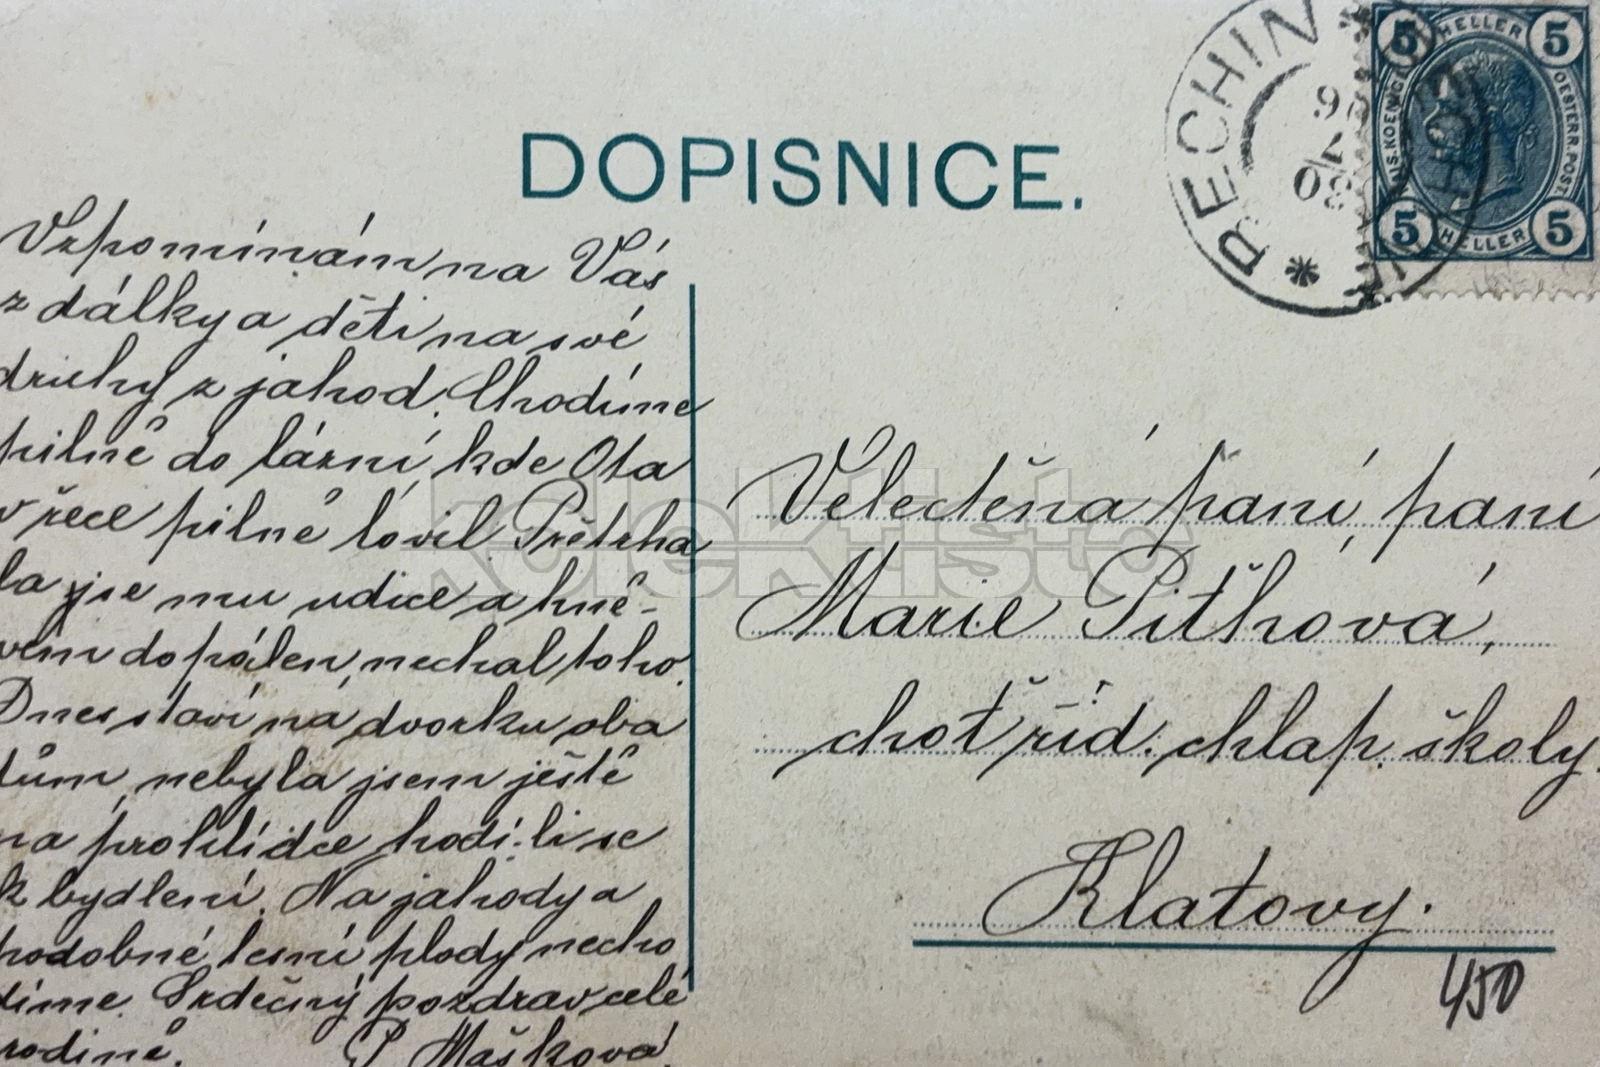 DOPISNICE.
Vzpomínám na Vás
z dálky a děti na své
druhy z jahod. Chodíme
pilně do lázní, kde Ota
v řece pilně lovil. Přetrha
la jse mu udice a hně-
vem dopálen, nechal toho.
Dnes staví na dvorku oba
dům, nebyla jsem ještě
na prohlídce hodí-li se
k bydlení. Na jahody a
podobné lesní plody necho
díme. Srdečný pozdrav celé
rodině. P. Mašková
BECHIN
26
7
08
5 HELLER 5
MUS.KOENIGL OESTERR.POST.
5 HELLER 5
Velectěná paní, paní
Marie Pithová,
choť říd. chlap. školy.
Klatovy.
450
kolektisto